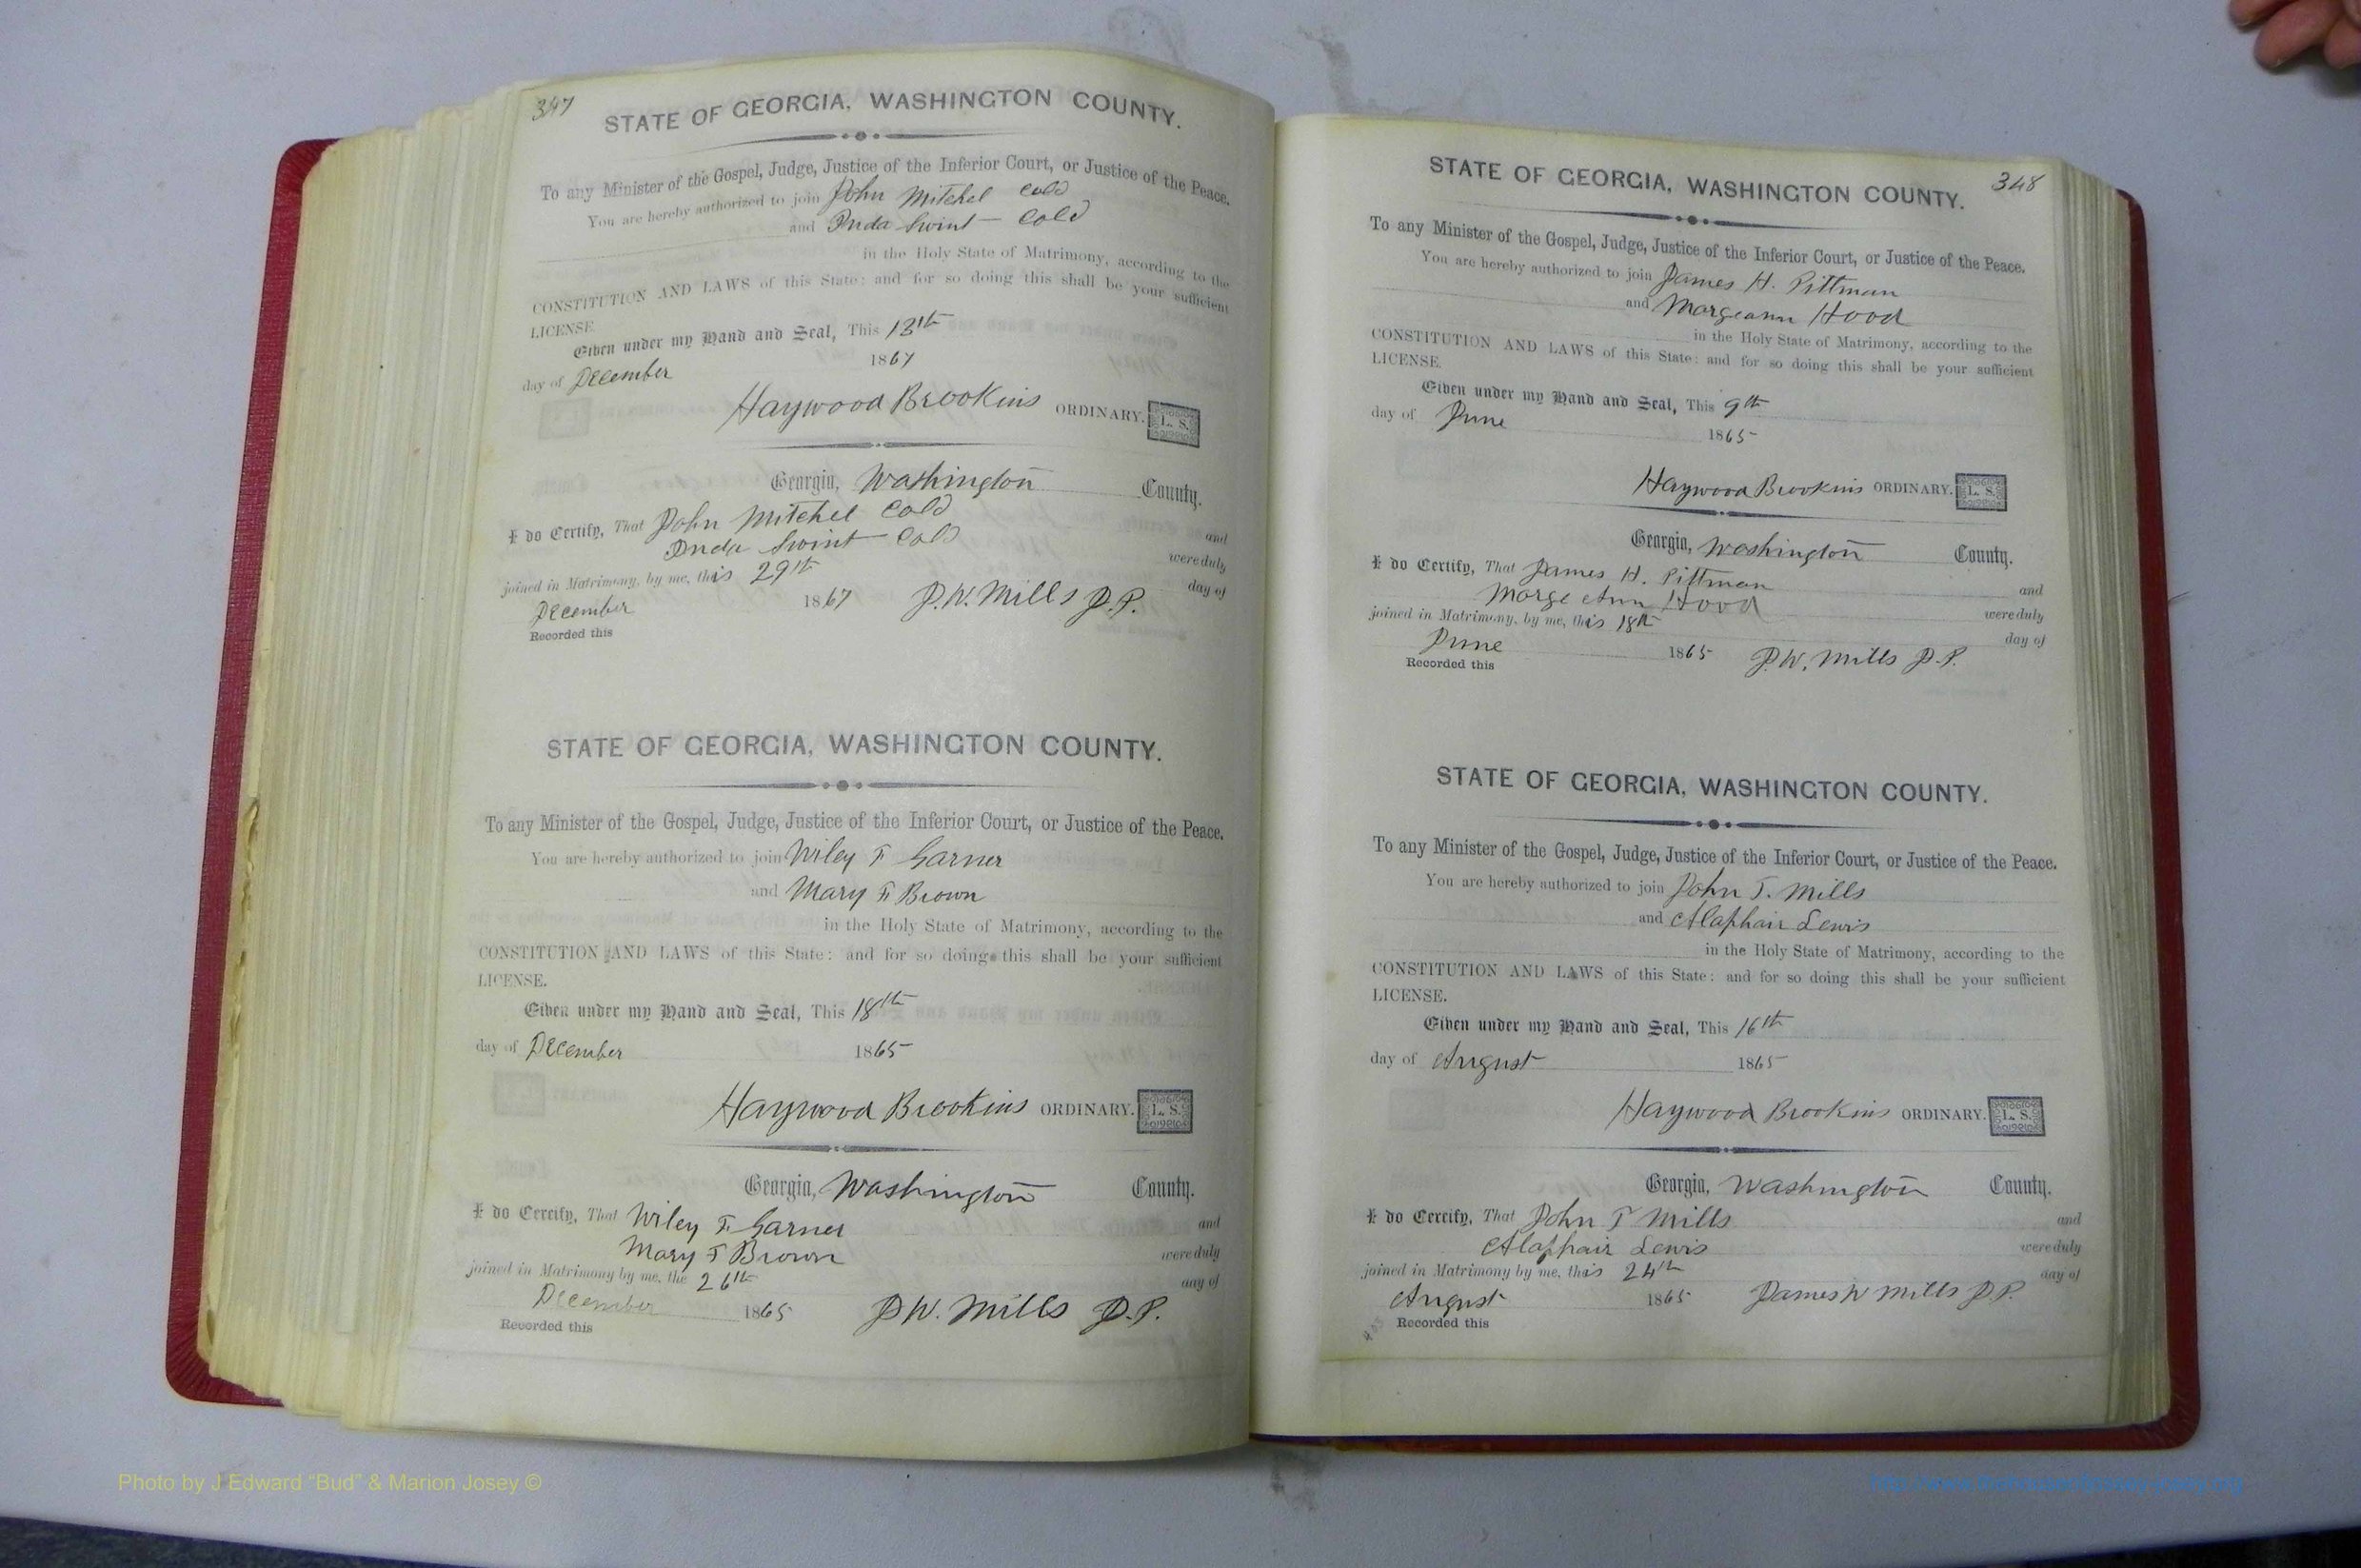 347
STATE OF GEORGIA, WASHINGTON COUNTY.
To any Minister of the Gospel, Judge, Justice of the Inferior Court, or Justice of the Peace.
You are hereby authorized to join John Mitchel Cold
and Inda Swint Cold
in the Holy State of Matrimony, according to the
CONSTITUTION AND LAWS of this State: and for so doing this shall be your sufficient
LICENSE.
Given under my Hand and Seal, This 13th
day of December 1867
Haywood Brookins ORDINARY. L. S.
Georgia, Washington County.
I do Certify, That John Mitchel Cold and
Inda Swint Cold were duly
joined in Matrimony, by me, this 29th day of
December 1867 J.W. Mills J.P.
Recorded this
STATE OF GEORGIA, WASHINGTON COUNTY.
To any Minister of the Gospel, Judge, Justice of the Inferior Court, or Justice of the Peace.
You are hereby authorized to join Wiley F Garner
and Mary F Brown
in the Holy State of Matrimony, according to the
CONSTITUTION AND LAWS of this State: and for so doing this shall be your sufficient
LICENSE.
Given under my Hand and Seal, This 18th
day of December 1865
Haywood Brookins ORDINARY. L. S.
Georgia, Washington County.
I do Certify, That Wiley F Garner and
Mary F Brown were duly
joined in Matrimony by me, the 26th day of
December 1865 J W. Mills J.P.
Recorded this
348
STATE OF GEORGIA, WASHINGTON COUNTY.
To any Minister of the Gospel, Judge, Justice of the Inferior Court, or Justice of the Peace.
You are hereby authorized to join James H. Pittman
and Margeann Hood
in the Holy State of Matrimony, according to the
CONSTITUTION AND LAWS of this State: and for so doing this shall be your sufficient
LICENSE.
Given under my Hand and Seal, This 9th
day of June 1865
Haywood Brookins ORDINARY. L. S.
Georgia, Washington County.
I do Certify, That James H. Pittman and
Marge Ann Hood were duly
joined in Matrimony, by me, this 18th day of
June 1865 J.W. Mills J.P.
Recorded this
STATE OF GEORGIA, WASHINGTON COUNTY.
To any Minister of the Gospel, Judge, Justice of the Inferior Court, or Justice of the Peace.
You are hereby authorized to join John T. Mills
and Alaphair Lewis
in the Holy State of Matrimony, according to the
CONSTITUTION AND LAWS of this State: and for so doing this shall be your sufficient
LICENSE.
Given under my Hand and Seal, This 16th
day of August 1865
Haywood Brookins ORDINARY. L. S.
Georgia, Washington County.
I do Certify, That John T Mills and
Alaphair Lewis were duly
joined in Matrimony by me, this 24th day of
August 1865 James W Mills J.P.
Recorded this
Photo by J Edward “Bud” & Marion Josey ©